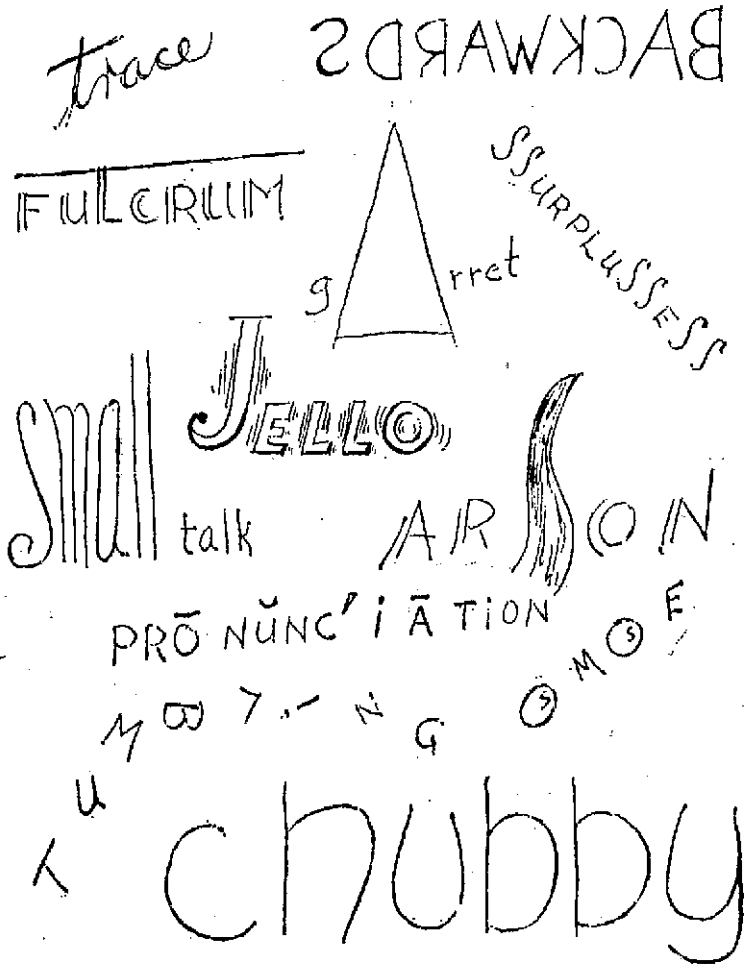 trace
BACKWARDS
FULCRUM
gArret
SSURPLUSSESS
JELLO
small talk
ARSON
PRŌNŬNC'iĀTiON
TUMBLING
OSMOSE
chubby